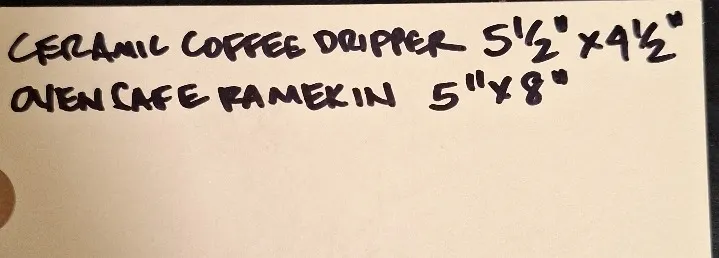 CERAMIC COFFEE DRIPPER 5½" x 4½"
OVEN SAFE RAMEKIN 5" x 8"